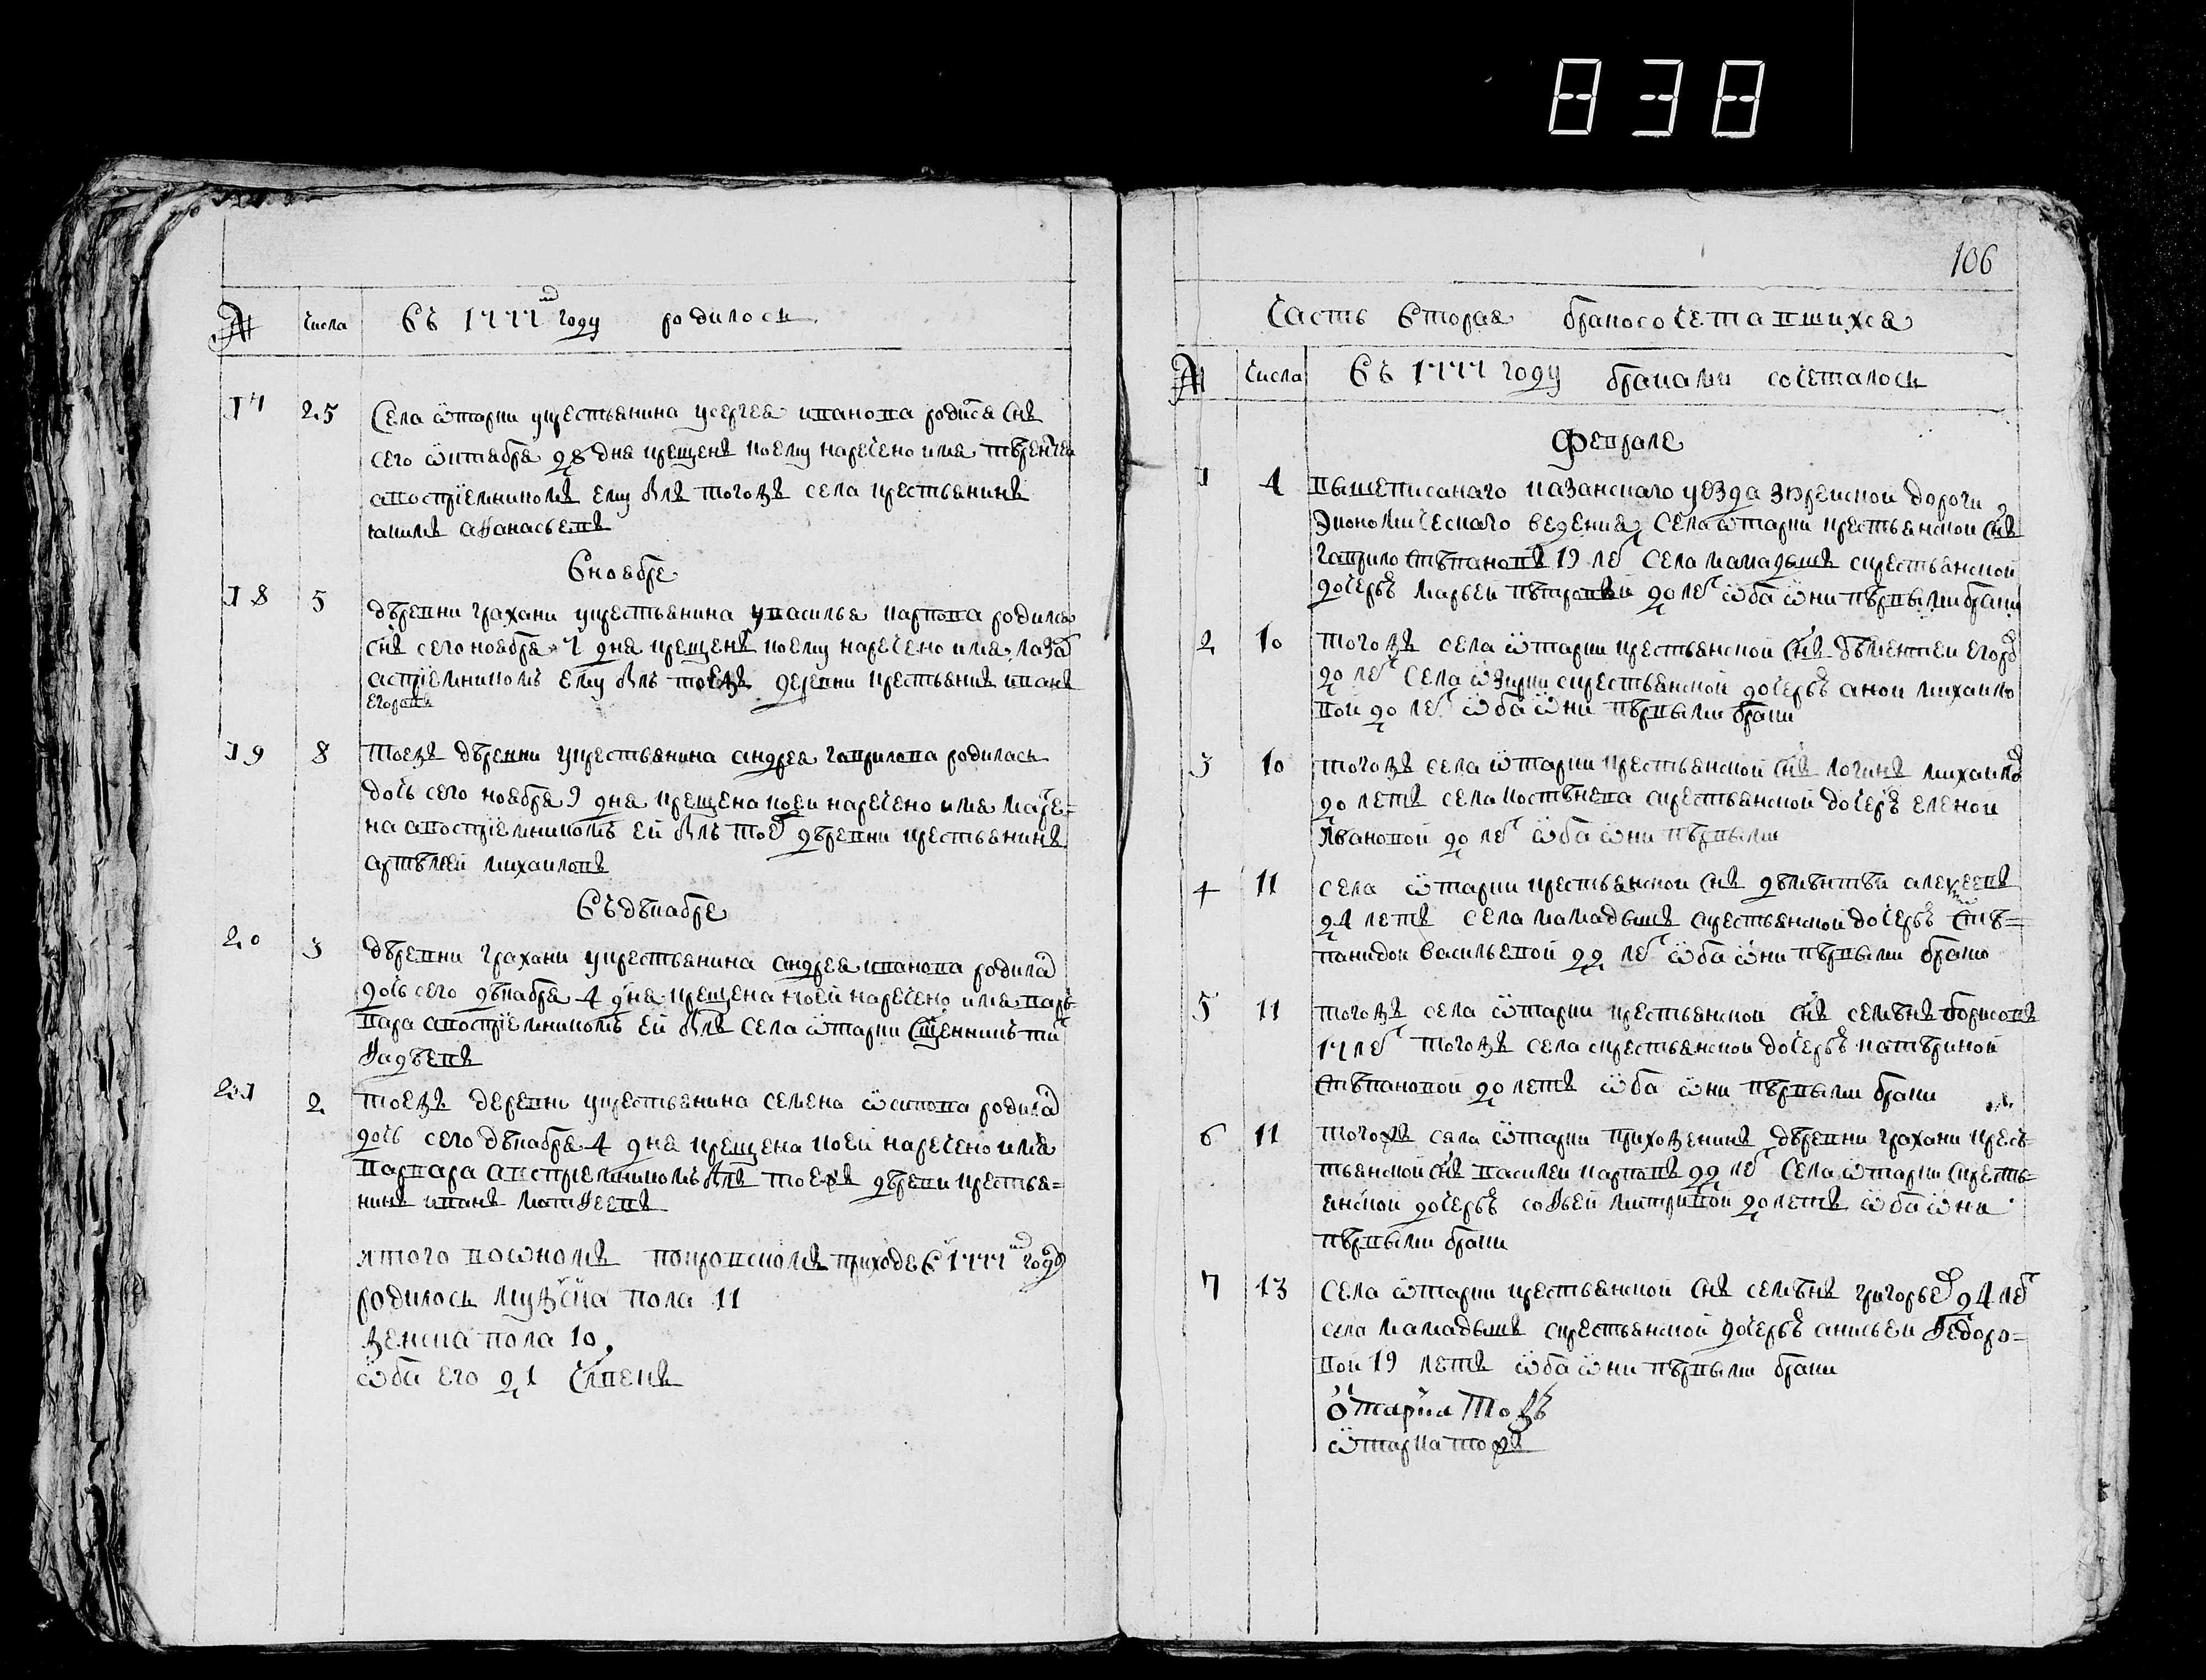 838
106
№ числа Въ 1777м году родилось
17 25 Села Ѿтарки укрестьянина усергея иванова родисѧ снъ
сего ѿктабря 28 дня крещенъ коему наречено имя тѣрентеи
авоспрiемникомъ ему былъ тогожъ села крестьянинъ
данилъ афанасьевъ
Вноябре
18 5 дѣревни грахани укрестьянина увасилья карпова родился
снъ сего ноября 7 дня крещенъ коему наречено имя лаза
аспрiемникомъ ему былъ тоежъ деревни крестьянинъ иванъ
Егоровъ
19 8 тоежъ дѣревни укрестьянина андрея гаврилова родилась
дочь сего ноября 9 дня крещена коеи наречено имя маре=
на авоспрiемникомъ ей былъ тое дѣревни крестьянинъ
артѣмей михаиловъ
Въ дѣкабре
20 3 дѣревни грахани укрестьянина андрея иванова родила
дочь сего дѣкабря 4 дня крещена коей наречено имя варь
вара авоспрiемникомъ ей былъ села ѿтарки сщенникъ
фадѣевъ
21 2 тоежъ деревни укрестьянина семена ѿсипова родила
дочь сего дѣкабря 4 дня крещена коей наречено имя
варвара авспрiемникомъ былъ тоежъ дѣревни крестья=
нинъ иванъ матфеевъ
итого воѿномъ покровскомъ приходе в 1777м году
родилось мужска пола 11
женска пола 10,
ѿба его 21 члвекъ
Часть Вторая бракосочетавшихся
№ числа Въ 1777 году браками сочеталось
Феврале
1 4 вышеписанаго казанскаго уезда зюреиской дороги
Экономическаго ведения села ѿтарки крестьянской снъ
гаврило стѣпановъ 19 ле села мамадышъ скрестьянской
дочерѣ марьеи пѣтровой 20 ле ѿба ѿни пѣрвыми браки
2 10 тогожъ села ѿтарки крестьянской снъ дѣментеи егоро
20 ле села скрестьянской дочерѣ анои михаило
вои 20 ле ѿба ѿни пѣрвыми браки
3 10 тогожъ села ѿтарки крестьянской снъ логинъ михаило
20 летъ села костѣнева скрестьянской дочерѣ еленои
Ивановой 20 ле ѿба ѿни пѣрвыми
4 11 села ѿтарки крестьянской снъ дѣмѣнтѣи алекеевъ
24 летъ села мамадышъ скрестьянской дочерѣ стѣ=
панидои васильевой 22 ле ѿба ѿни пѣрвыми браки
5 11 тогожъ села ѿтарки крестьянской снъ семѣнъ борисовъ
17 ле тогожъ села скрестьянской дочерѣ катѣриной
стѣпановой 20 летъ ѿба ѿни пѣрвыми браки
6 11 тогожъ села ѿтарки прихоженинъ дѣревни грахани кресь
тьянской снъ василеи карповъ 22 ле села ѿтарки скресть=
янской дочерѣ софьей митривой 20 летъ ѿба ѿни
пѣрвыми браки
7 13 села ѿтарки крестьянской снъ семѣнъ григорье 24 ле
села мамадышъ скрестьянской дочерѣ анисьеи федоро=
вои 19 летъ ѿба ѿни пѣрвыми браки
ѿтарка тожъ
ѿтарка тожъ